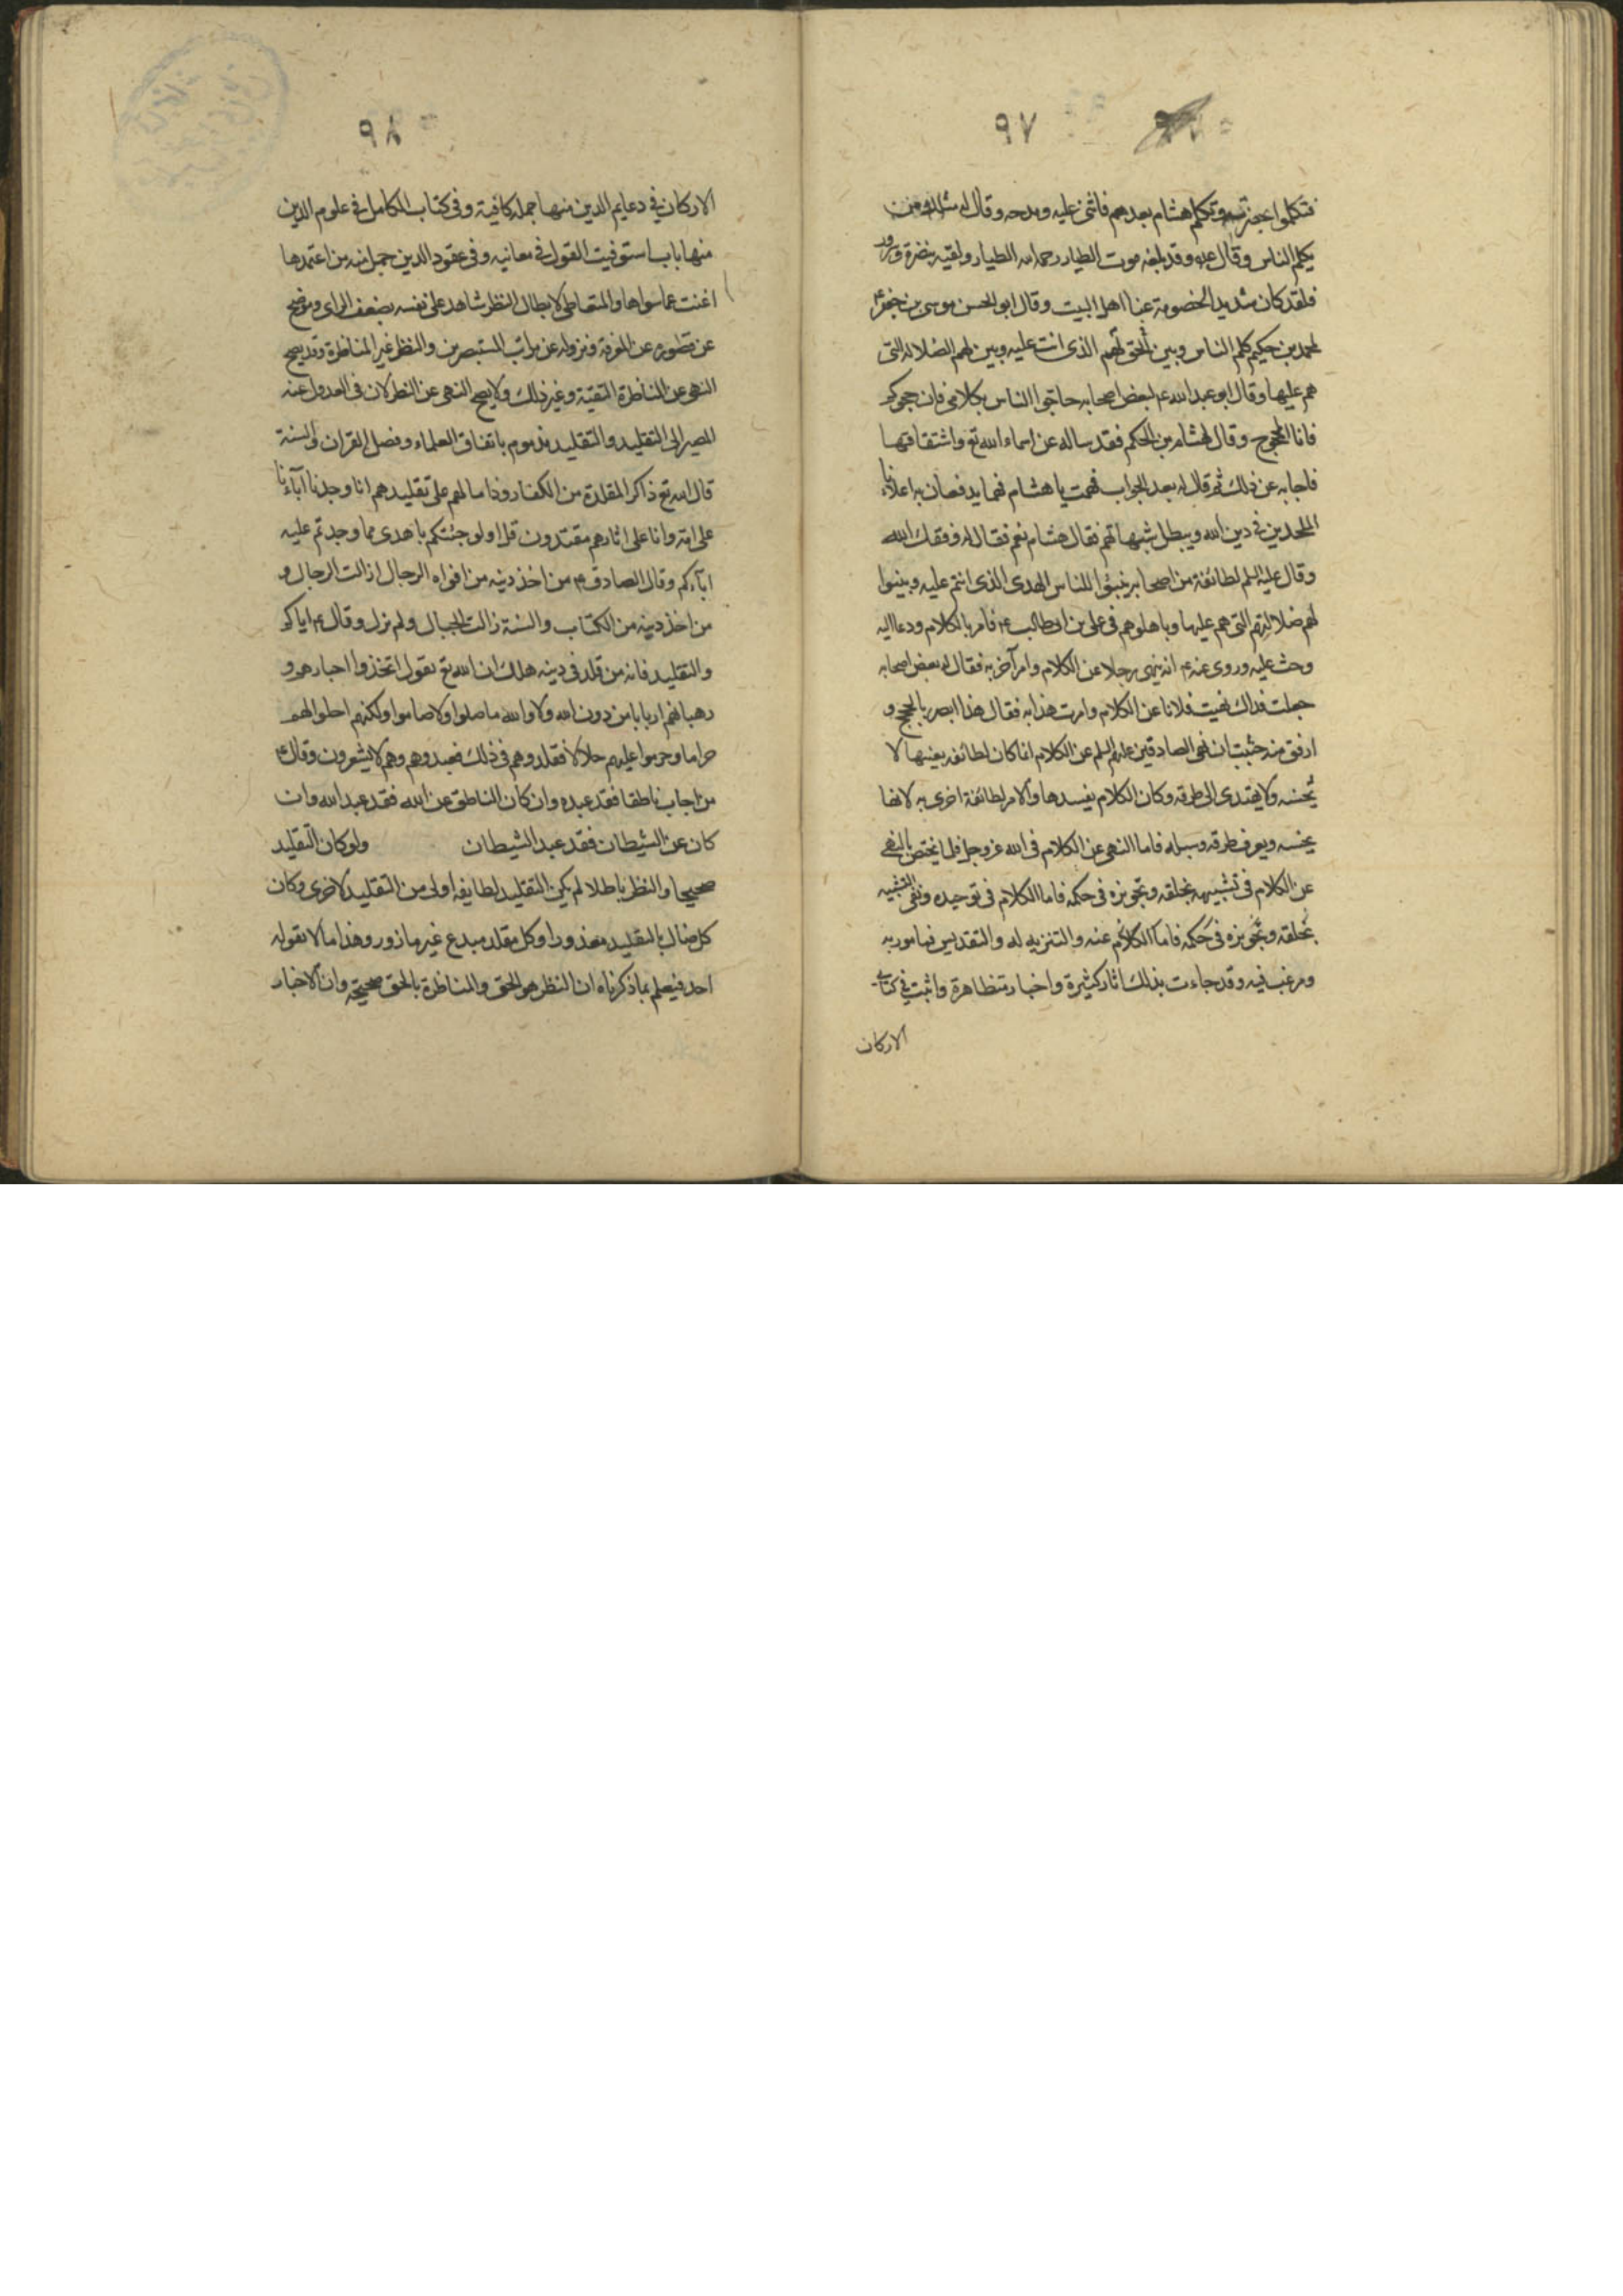 ٩٧
فتكلموا بحضرته وتكلم هشام بعدهم فاثنى عليه ومدحه وقال له مثلك من
يكلم الناس وقال ع وقد بلغه موت الطيار رحم الله الطيار ولقيه نضرة وسرور
فلقد كان شديد الخصومة عنا اهل البيت وقال ابو الحسن موسى بن جعفر ع
لمحمد بن حكيم كلم الناس وبين لهم الحق الذى انت عليه وبين لهم الضلالة التى
هم عليها وقال ابو عبد الله ع لبعض اصحابه حاجوا الناس بكلامى فان حجوكم
فانا المحجوج وقال لهشام بن الحكم فقد ساله عن اسماء الله تع واشتقاقها
فاجابه عن ذلك ثم قال له بعد الجواب فهمت يا هشام فهما يدفع به اعداءنا
الملحدين فى دين الله ويبطل شبهاتهم فقال هشام نعم فقال له وفقك الله
وقال عليه السلم لطائفة من اصحابه بينوا للناس الهدى الذى انتم عليه وبينوا
لهم ضلالتهم التى هم عليها وباهلوهم فى على بن ابى طالب ع فامر بالكلام ودعا اليه
وحث عليه وروى عنه ع انه نهى رجلا عن الكلام وامر آخر به فقال له بعض اصحابه
جعلت فداك نهيت فلانا عن الكلام وامرت هذا به فقال هذا ابصر بالحجج و
ارفق منه فثبت ان نهى الصادقين عليهم السلم عن الكلام انما كان لطائفه بعينها لا
تحسنه ولا يهتدى الى طرقه وكان الكلام يفسدها والامر لطائفة اخرى به لانها
تحسنه ويعرف طرقه وسبله فاما النهى عن الكلام فى الله عز وجل فلما يختص بالنهى
عن الكلام فى تشبيهه بخلقه وتجويزه فى حكمه فاما الكلام فى توحيده ونفى التشبيه
بخلقه وتجويزه فى حكمه فاما الكلام عنه والتنزيه له والتقديس فمامور به
ومرغب فيه وقد جاءت بذلك اثار كثيرة واخبار متظاهرة واثبت فى كتابى
الاركان
٩٨
الاركان فى دعايم الدين منها جملة كافية وفى كتاب الكامل فى علوم الدين
منها بابا استوفيت القول فى معانيه وفى عقود الدين جمل منه من اعتمدها
اغنت عما سواها والمتعاطى لابطال النظر شاهد على نفسه بضعف الراى وموضح
عن قصوره عن المعرفة ونزوله عن مراتب المستبصرين والنظر غير المناظرة وقد يصح
النهى عن المناظرة للتقيّة وغير ذلك ولا يصح النهى عن النظر لان فى العدول عنه
المصير الى التقليد والتقليد مذموم باتفاق العلماء ونص القران والسنة
قال الله تع ذاكر المقلدة من الكفار وذاما لهم على تقليدهم انا وجدنا آباءنا
على امة وانا على اثارهم مقتدون قل اولو جئتكم باهدى مما وجدتم عليه
ابآءكم وقال الصادق ع من اخذ دينه من افواه الرجال ازالت الرجال و
من اخذ دينه من الكتاب والسنة زالت الجبال ولم يزل وقال ع اياكم
والتقليد فانه من قلد فى دينه هلك ان الله تع يقول اتخذوا احبارهم و
رهبانهم اربابا من دون الله ولا والله ما صلوا ولا صاموا ولكنهم احلوا لهم
حراما وحرموا عليهم حلالا فقلدوهم فى ذلك فعبدوهم وهم لا يشعرون وقال ع
من اجاب ناطقا فقد عبده وان كان الناطق عن الله فقد عبد الله وان
كان عن الشيطان فقد عبد الشيطان ولو كان التقليد
صحيحا والنظر باطلا لم يكن التقليد لطايفه اولى من التقليد لاخرى وكان
كل ضال بالتقليد معذورا وكل مقلد مبدع غير مازور وهذا ما لا يقوله
احد فيعلم بما ذكرناه ان النظر هو الحق والمناظرة بالحق صحيحة وان الاخبار